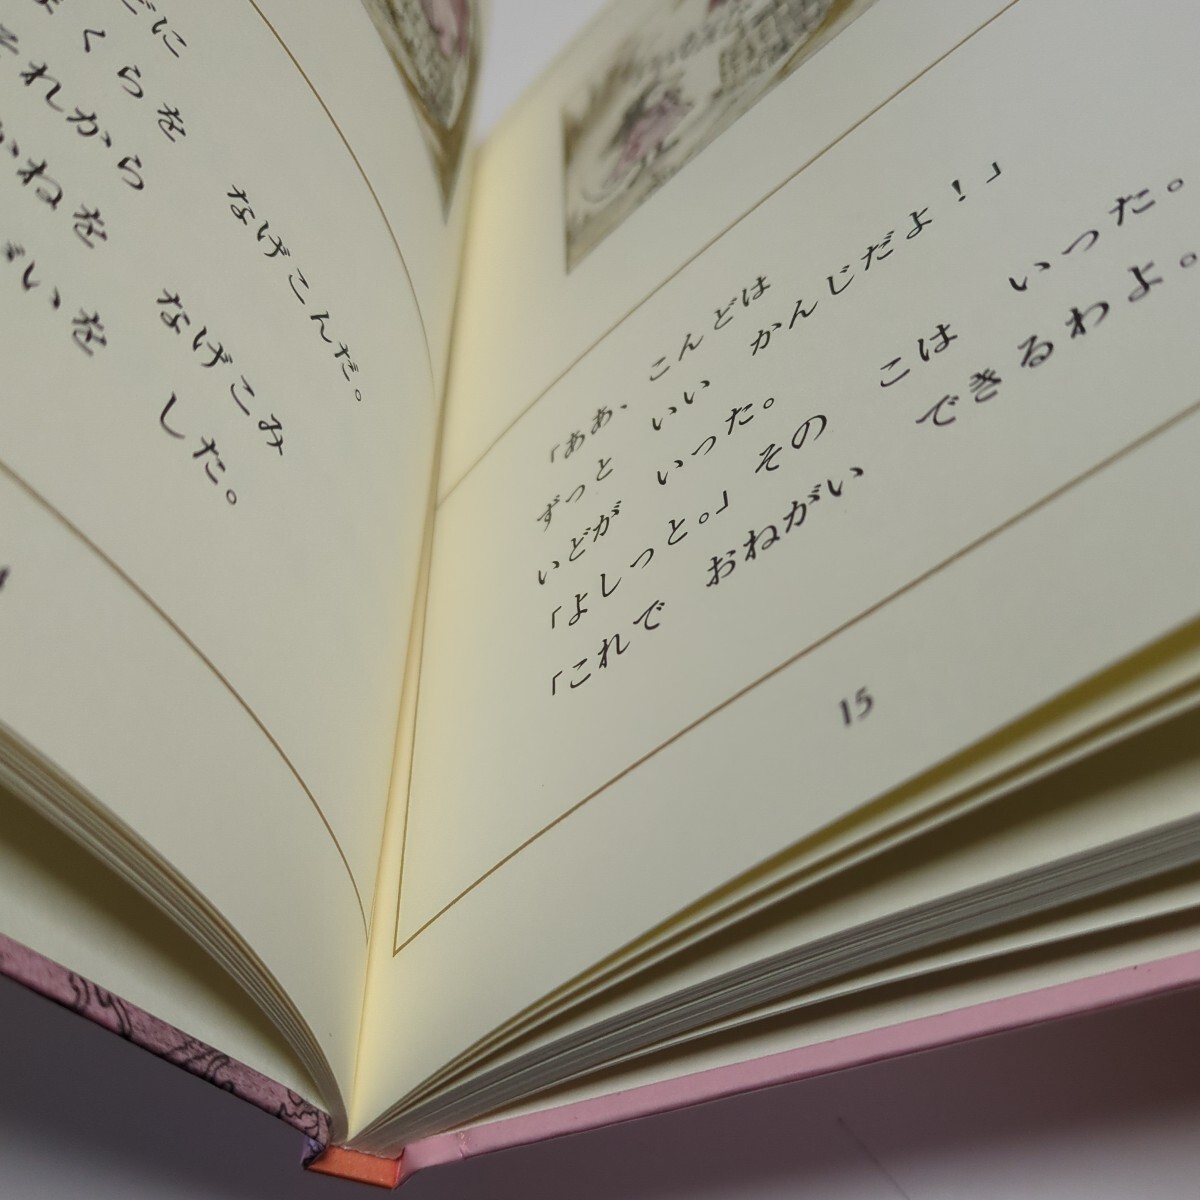 どに
くらを なげこんだ。
それから
かねを なげこみ
いを した。
「ああ、こんどは
ずっと いい かんじだよ！」
いどが いった。
「よしっと。」その こは いった。
「これで おねがい できるわよ。
15